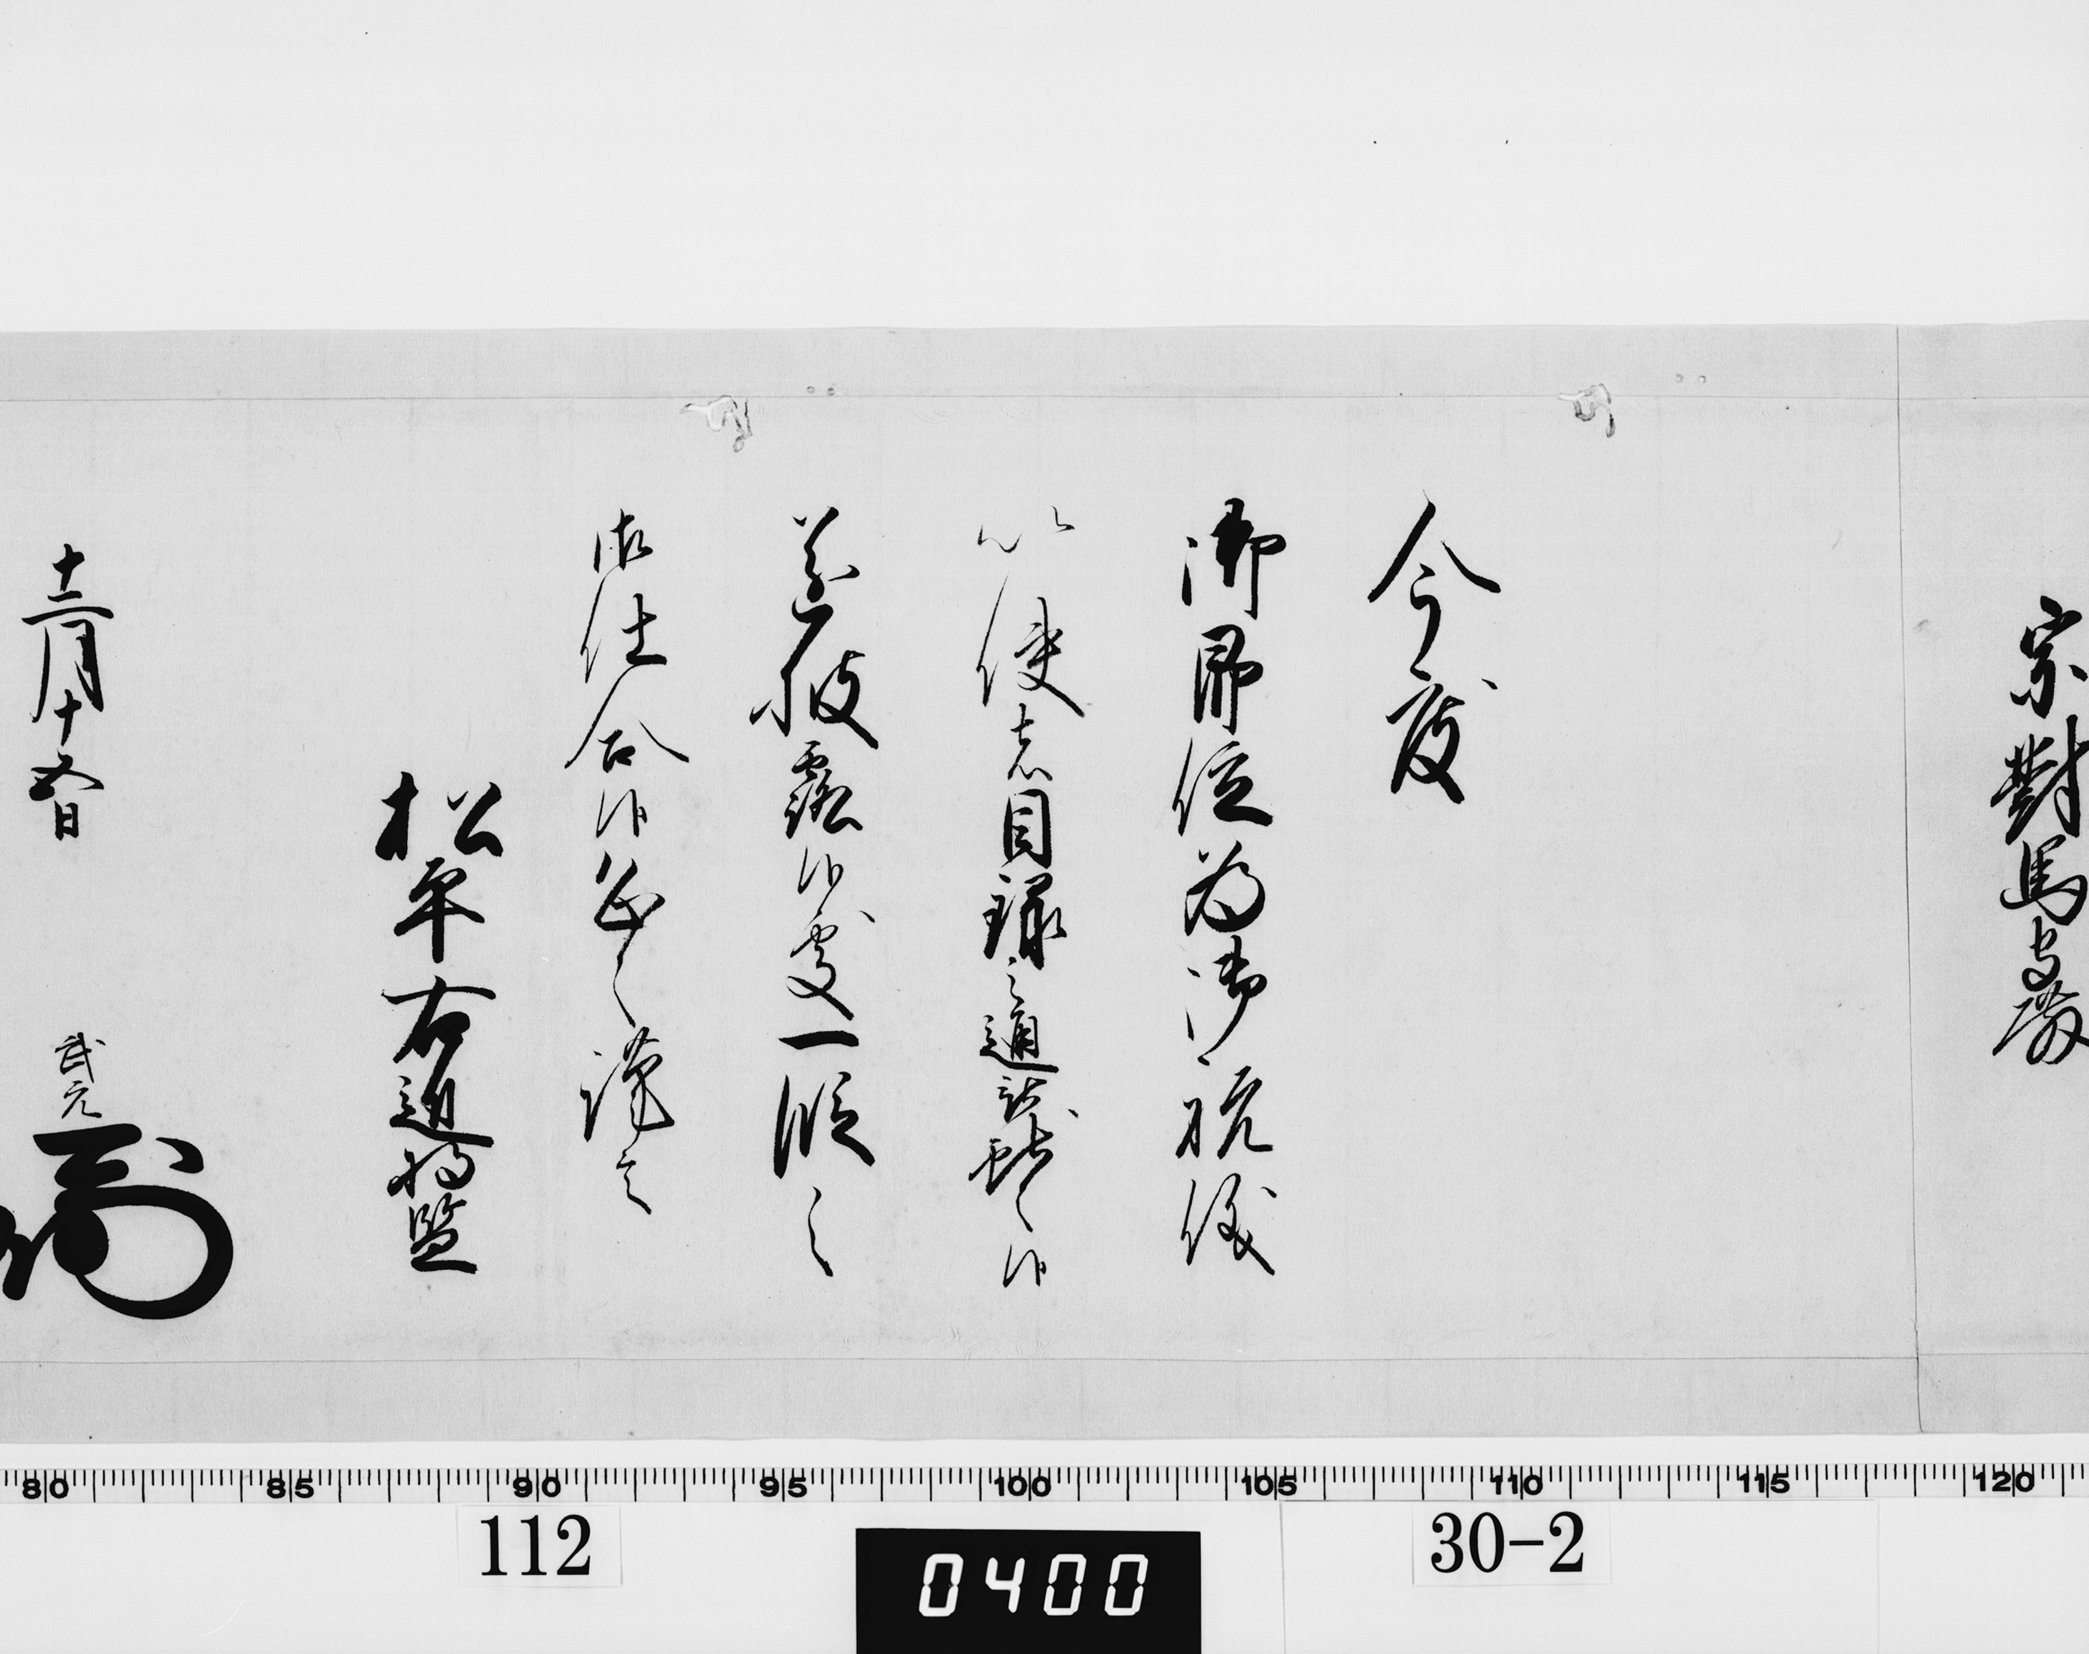 宗對馬守殿
今度
御即位為御祝儀
以使者目録之通被獻之候
遂披露候處一段之
御仕合候恐々謹言
松平右近將監
十二月十五日
武元
80 85 90 95 100 105 110 115 120
112
0400
30-2